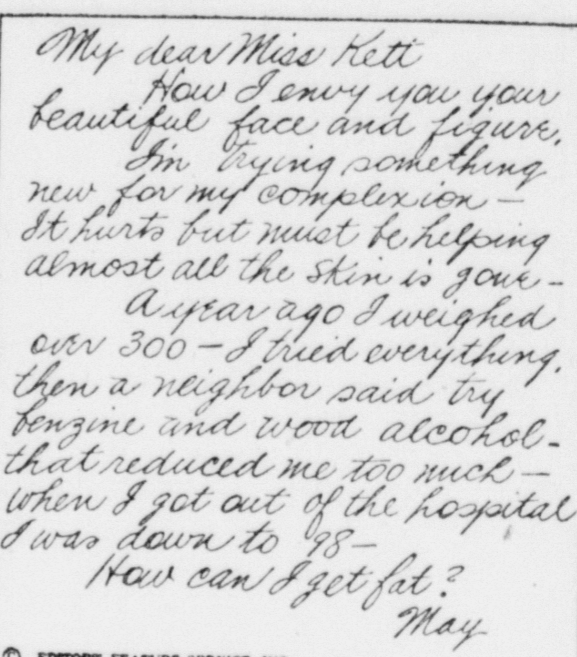 My dear Miss Kett
How I envy you your
beautiful face and figure.
I'm trying something
new for my complexion —
It hurts but must be helping
almost all the skin is gone —
A year ago I weighed
over 300 — I tried everything.
then a neighbor said try
benzine and wood alcohol -
that reduced me too much —
when I got out of the hospital
I was down to 98 —
How can I get fat?
May
©